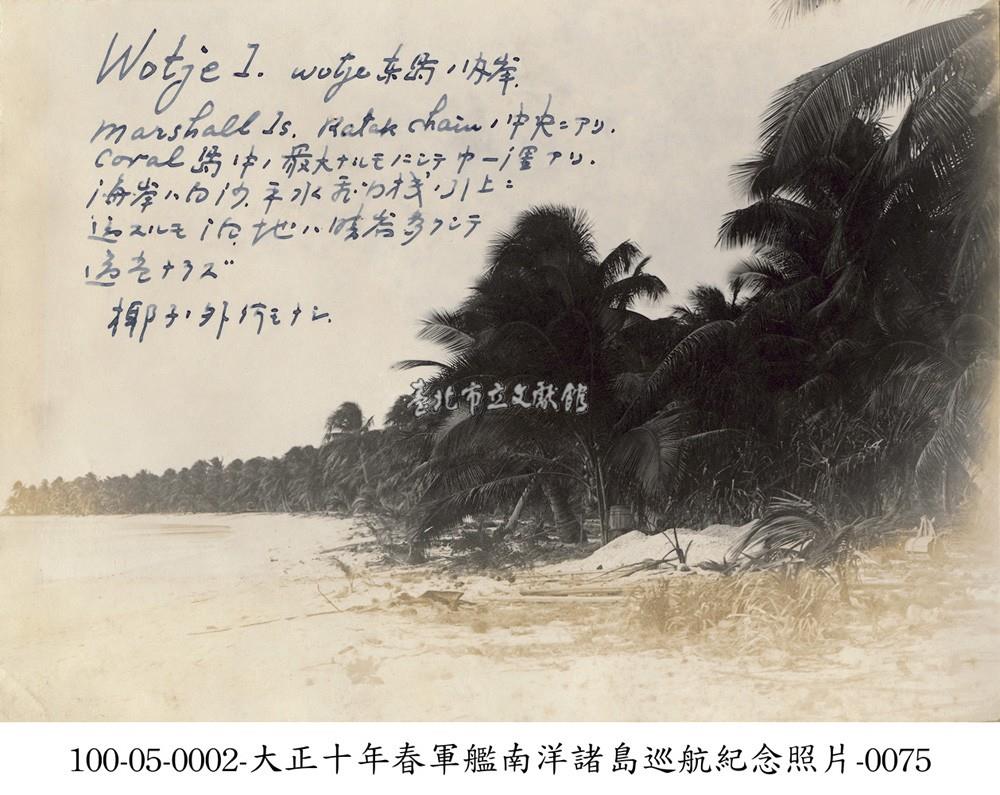 Wotje I. Wotje 东島ノ内岸.
Marshall Is. Ratak chain ノ中央ニアリ.
Coral 島中ノ最大ナルモノニシテ中一澤アリ.
海岸ハ白沙,平水 引上ニ
適スルモ 地ハ 岩多フシテ
適 ナラズ
椰子ノ外何モナシ.
臺北市立文獻館
100-05-0002-大正十年春軍艦南洋諸島巡航紀念照片-0075